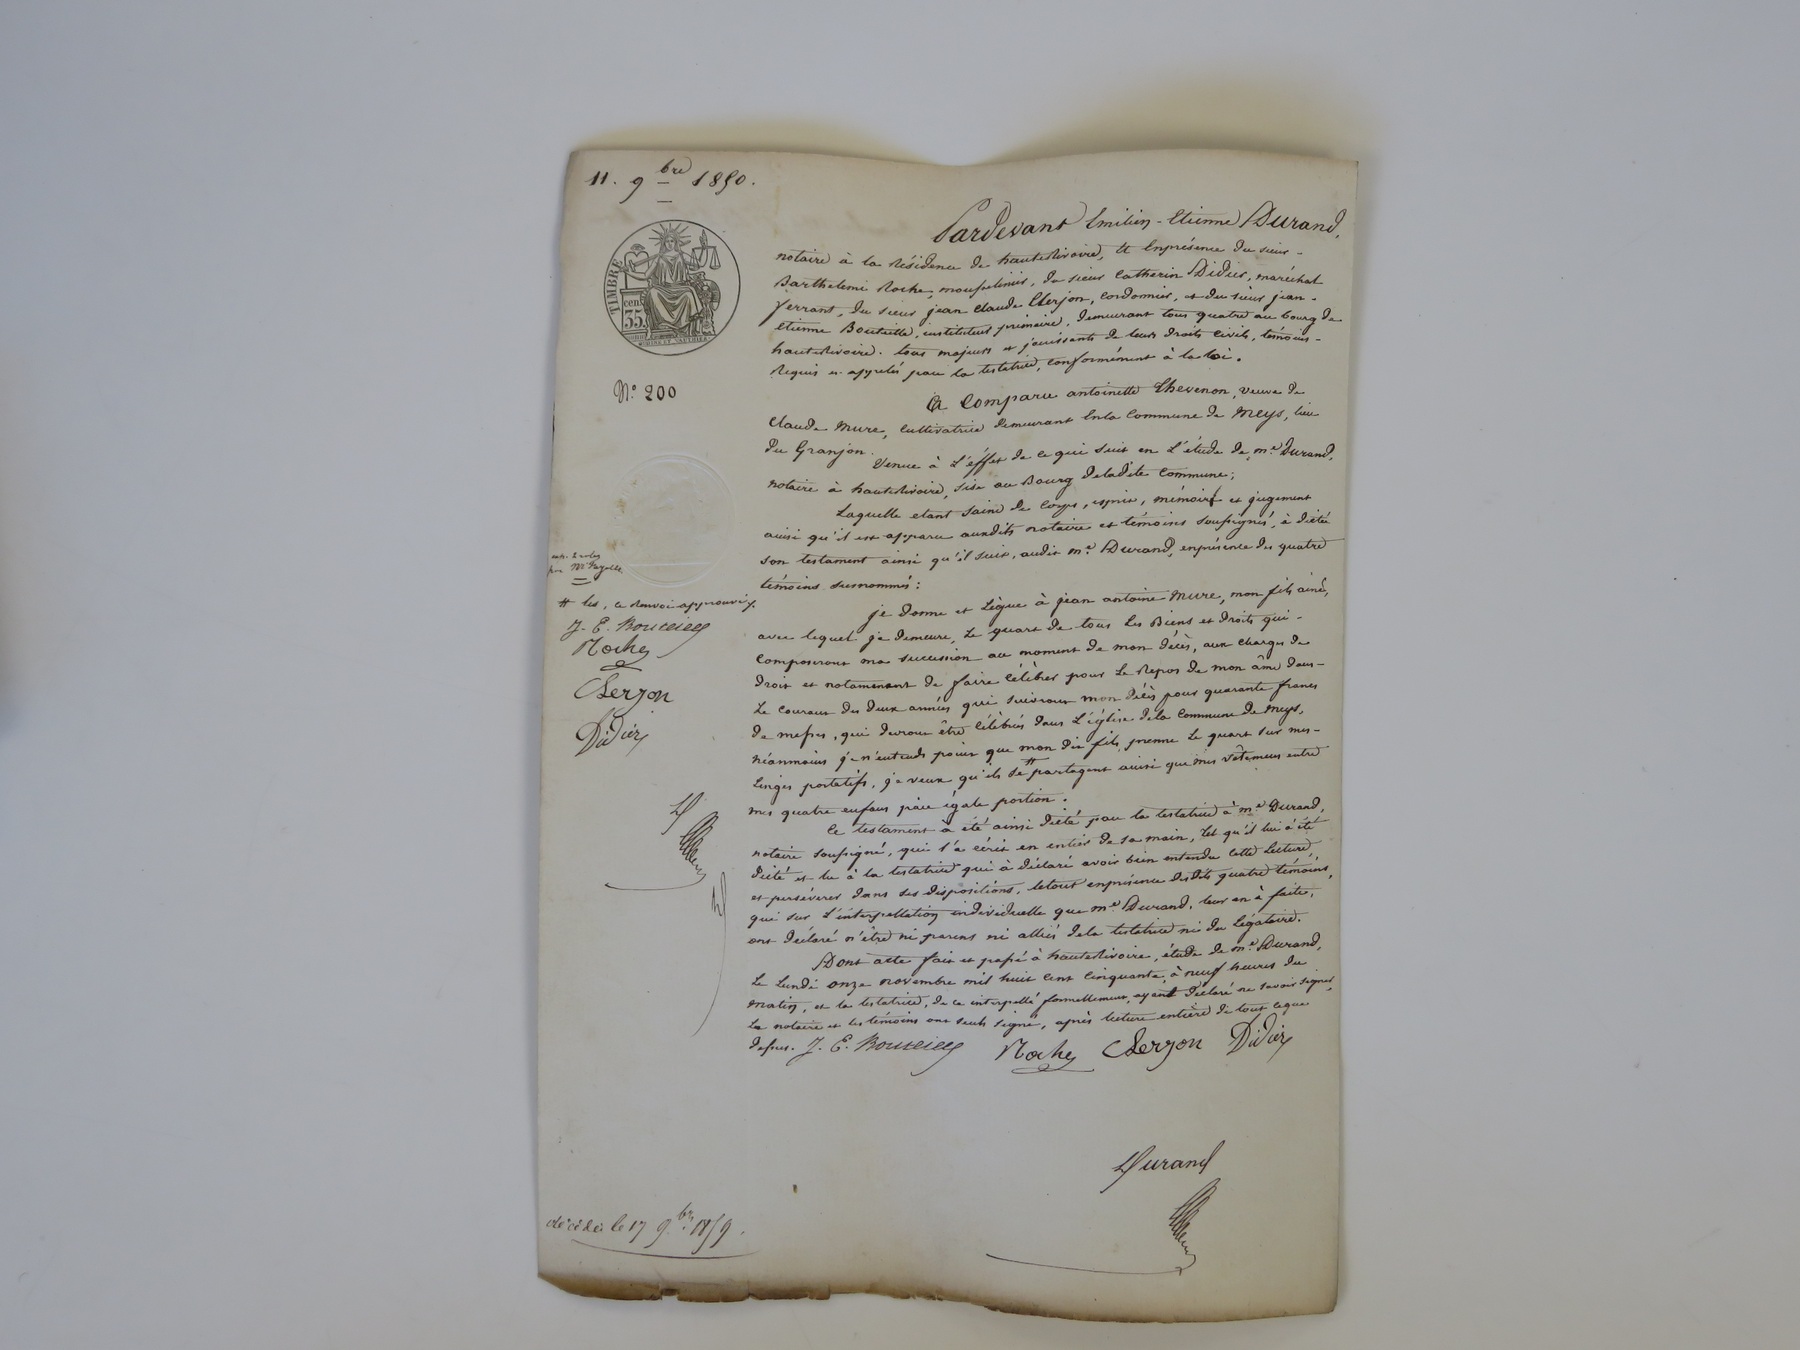 11. 9bre 1850.
TIMBRE
cen
35
N° 200
Pardevant Emilien-Etienne Durand,
notaire à la Résidence de hauterivoire, et Enprésence du sieur-
Barthelemi Roche, mousselinier, du sieur Catherin Didier, maréchal
ferrant, du sieur jean Claude Clerjon, cordonnier, et du sieur jean-
Etienne Bouteille, instituteur primaire, demeurant tous quatre au bourg de
hauterivoire. tous majeurs et jouissants de leurs droits civils, témoins-
Requis et appelés par la testatrice, conformément à la loi.
a Comparu antoinette Thevenon, veuve de
Claude Mure, Cultivatrice demeurant Enla Commune de Meys, lieu
du Granjon.
Venue à L'éffet de ce qui suit en L'étude de me Durand,
notaire à hauterivoire, sise au Bourg deladite Commune;
Laquelle etant saine de corps, esprit, mémoire et jugement
ainsi qu'il est apparu auxdits notaire et témoins soussignés, à dicté
son testament ainsi qu'il suit, audit me Durand, enprésence des quatre
témoins susnommés:
je donne et Lègue à jean antoine Mure, mon fils ainé,
avec lequel je demeure, Le quart de tous les Biens et droits qui-
Composeront ma succession au moment de mon décès, aux charges de
droit et notamment de faire célébrer pour Le Repos de mon âme dans-
Le Courant des deux années qui suivront mon décès pour quarante francs
de messes, qui devront être célébrées dans L'église dela Commune de Meys,
néanmoins je n'entends point que mon dit fils, prenne Le quart sur mes-
Linges portatifs, je veux qu'ils se # partagent ainsi que mes vêtemens entre
mes quatre enfans par égale portion.
Ce testament à été ainsi dicté par la testatrice à me Durand,
notaire soussigné, qui l'a écrit en entier de sa main, tel qu'il lui à été
dicté et lu à la testatrice qui à déclaré avoir bien entendu cette Lecture,
et persévérer dans ses dispositions, letout enprésence desdits quatre témoins,
qui sur L'interpellation individuelle que me Durand, leur en à faite,
ont déclaré n'être ni parens ni alliés dela testatrice ni du Légataire.
Dont acte fait et passé à hauterivoire, étude de me Durand,
Le Lundi onze novembre mil huit cent cinquante, à neuf heures du
matin, et la testatrice, de ce interpellé formellement, ayant déclaré ne savoir signer,
Le notaire et les témoins ont seuls signé, après lecture entière de tout ceque
dessus. J. E. Bouteille Roche Clerjon Didier
Durand
# les, ce Renvoi approuvé.
J. E. Bouteille
Roche
Clerjon
Didier
décédée le 17 9bre 1859.